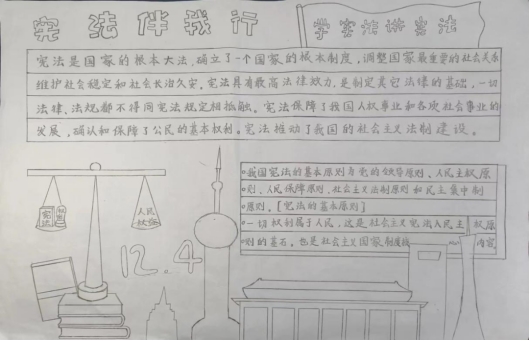 宪法伴我行
学宪法讲宪法
宪法是国家的根本大法,确立了一个国家的根本制度,调整国家最重要的社会关系
维护社会稳定和社会长治久安。宪法具有最高法律效力,是制定其它法律的基础,一切
法律、法规都不得同宪法规定相抵触。宪法保障了我国人权事业和各项社会事业的
发展,确认和保障了公民的基本权利。宪法推动了我国的社会主义法制建设。
我国宪法的基本原则有党的领导原则、人民主权原
则、人民保障原则、社会主义法制原则和民主集中制
原则。[宪法的基本原则]
一切权利属于人民,这是社会主义宪法人民主权原
则的基石。也是社会主义国家制度核 内容
宪法
人民
12.4